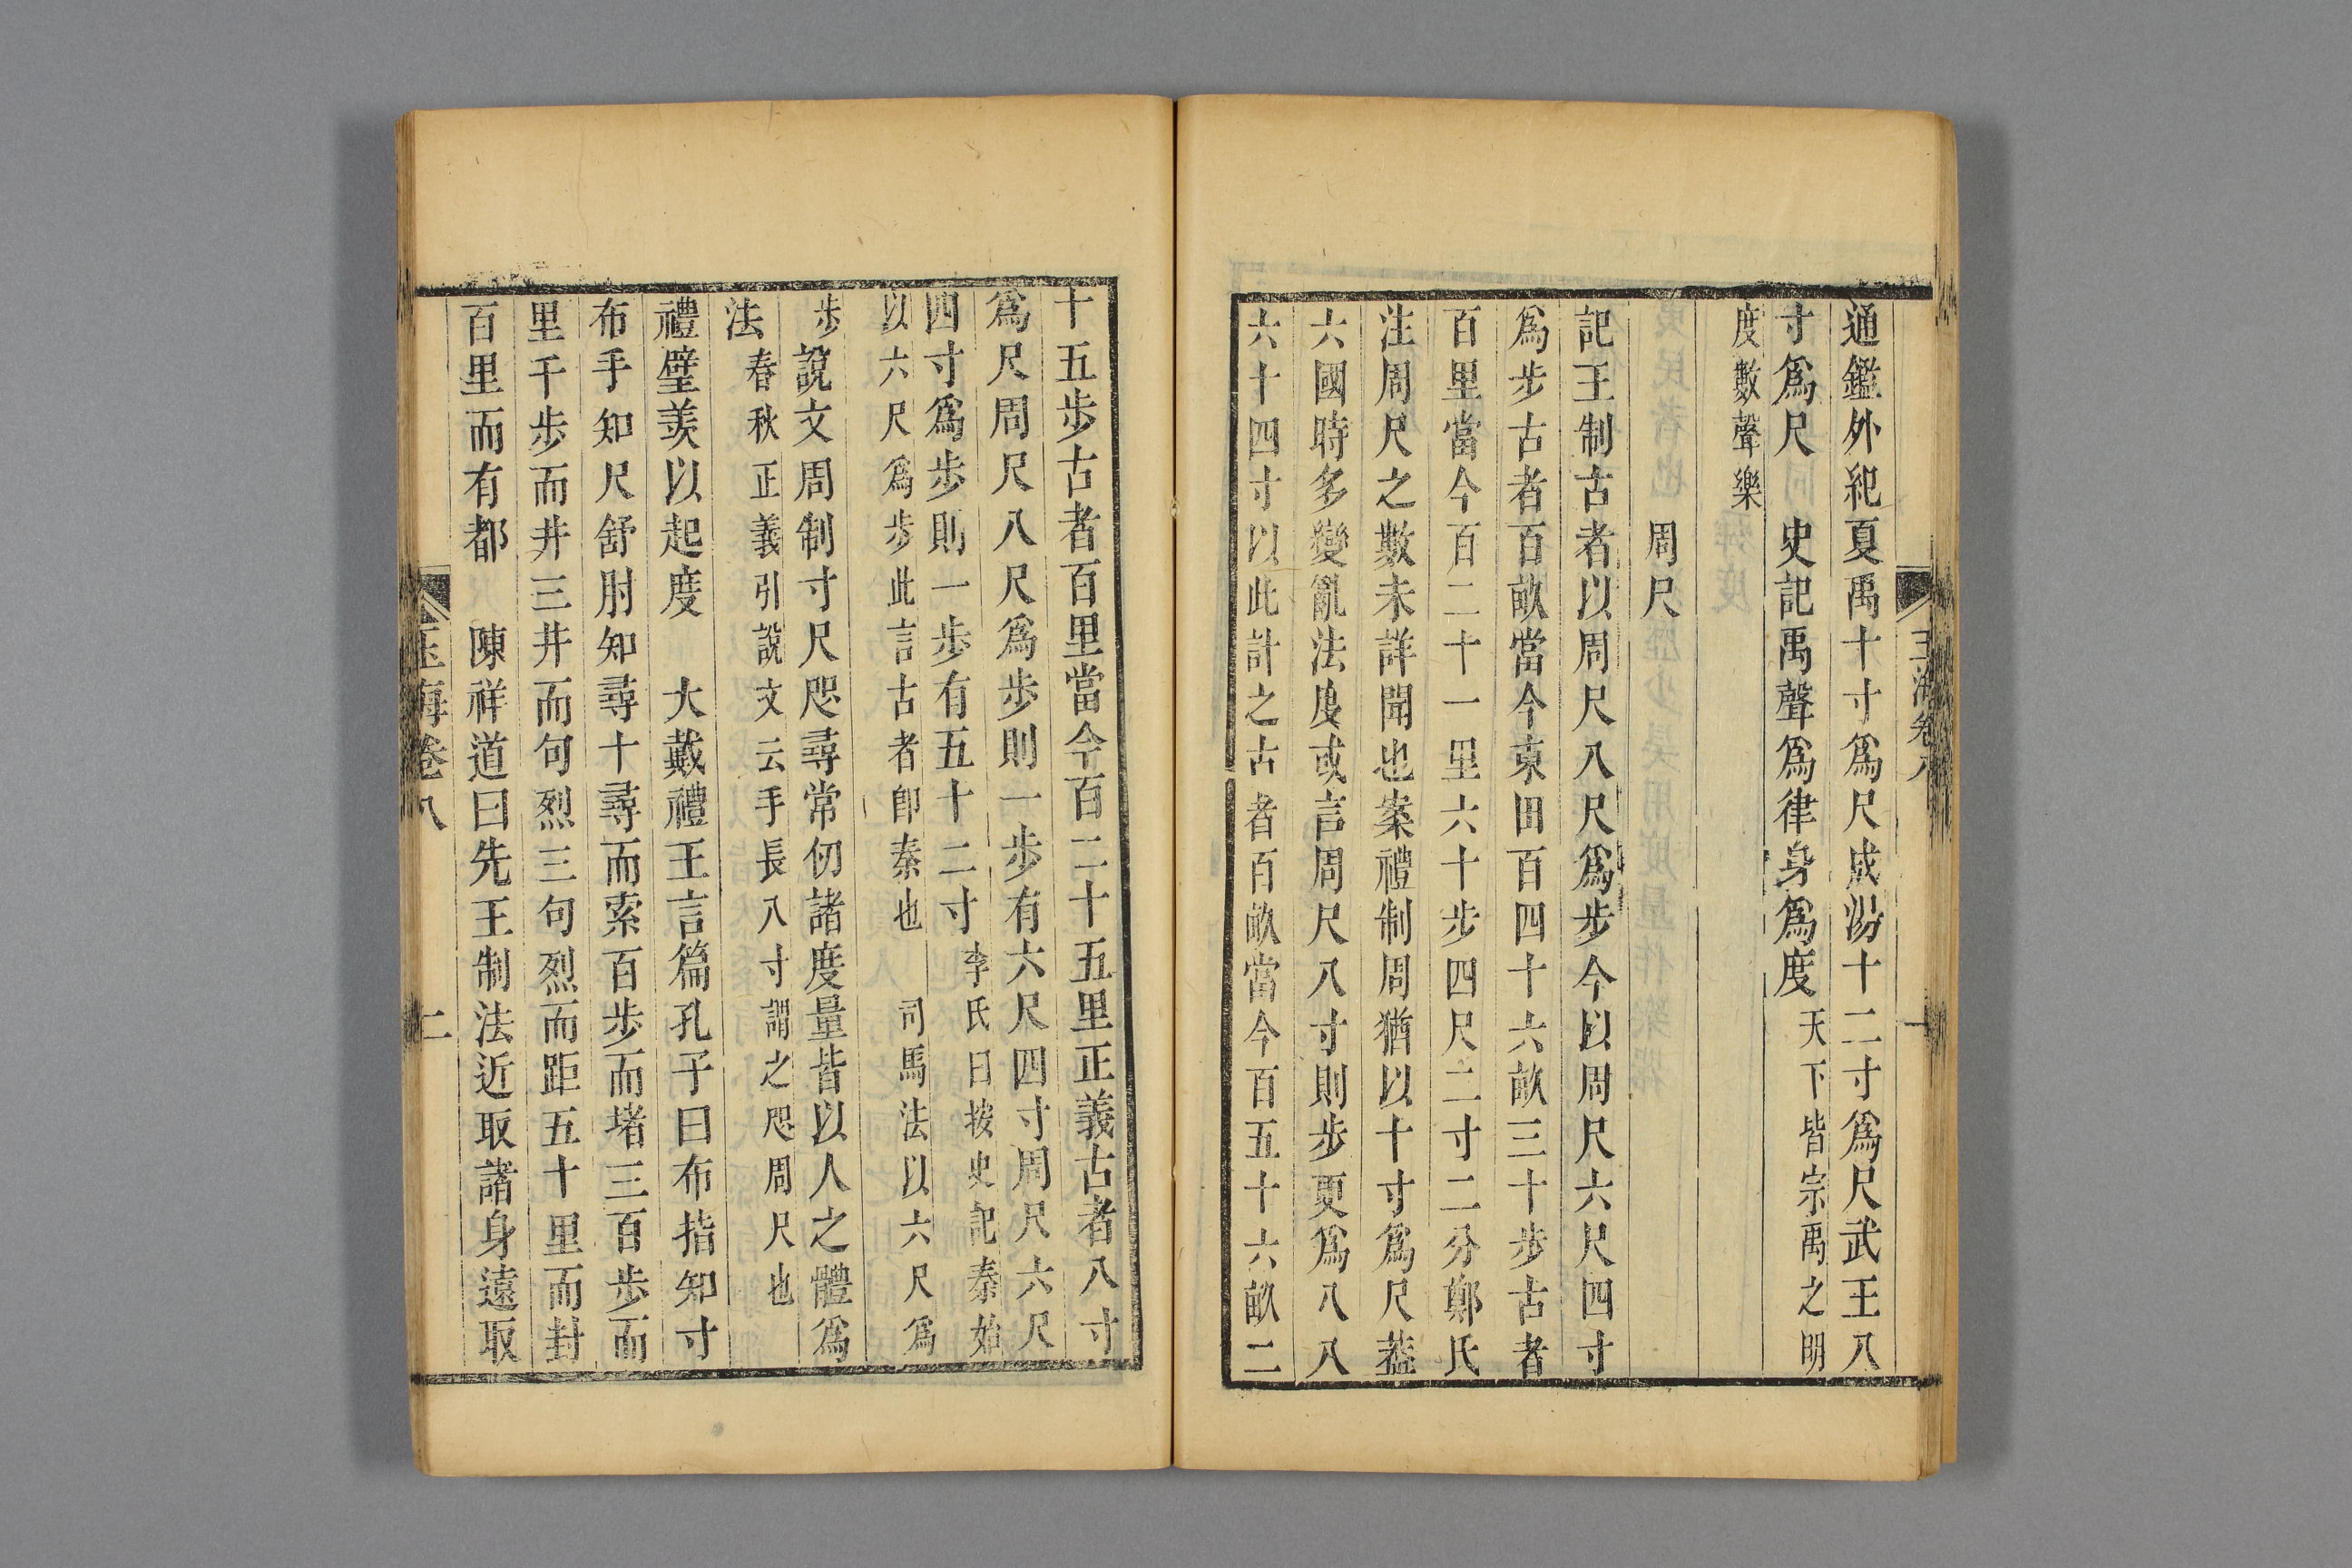 玉海卷八 一
通鑑外紀夏禹十寸爲尺成湯十二寸爲尺武王八
寸爲尺 史記禹聲爲律身爲度 天下皆宗禹之明
度數聲樂
周尺
記王制古者以周尺八尺爲步今以周尺六尺四寸
爲步古者百畝當今東田百四十六畝三十步古者
百里當今百二十一里六十步四尺二寸二分鄭氏
注周尺之數未詳聞也案禮制周猶以十寸爲尺蓋
六國時多變亂法度或言周尺八寸則步更爲八八
六十四寸以此計之古者百畝當今百五十六畝二
十五步古者百里當今百二十五里正義古者八寸
爲尺周尺八尺爲步則一步有六尺四寸周尺六尺
四寸爲步則一步有五十二寸 李氏曰按史記秦始
以六尺爲步此言古者卽秦也 司馬法以六尺爲
步 說文周制寸尺咫尋常仞諸度量皆以人之體爲
法 春秋正義引說文云手長八寸謂之咫周尺也
禮璧羨以起度 大戴禮王言篇孔子曰布指知寸
布手知尺舒肘知尋十尋而索百步而堵三百步而
里千步而井三井而句烈三句烈而距五十里而封
百里而有都 陳祥道曰先王制法近取諸身遠取
玉海卷八 二